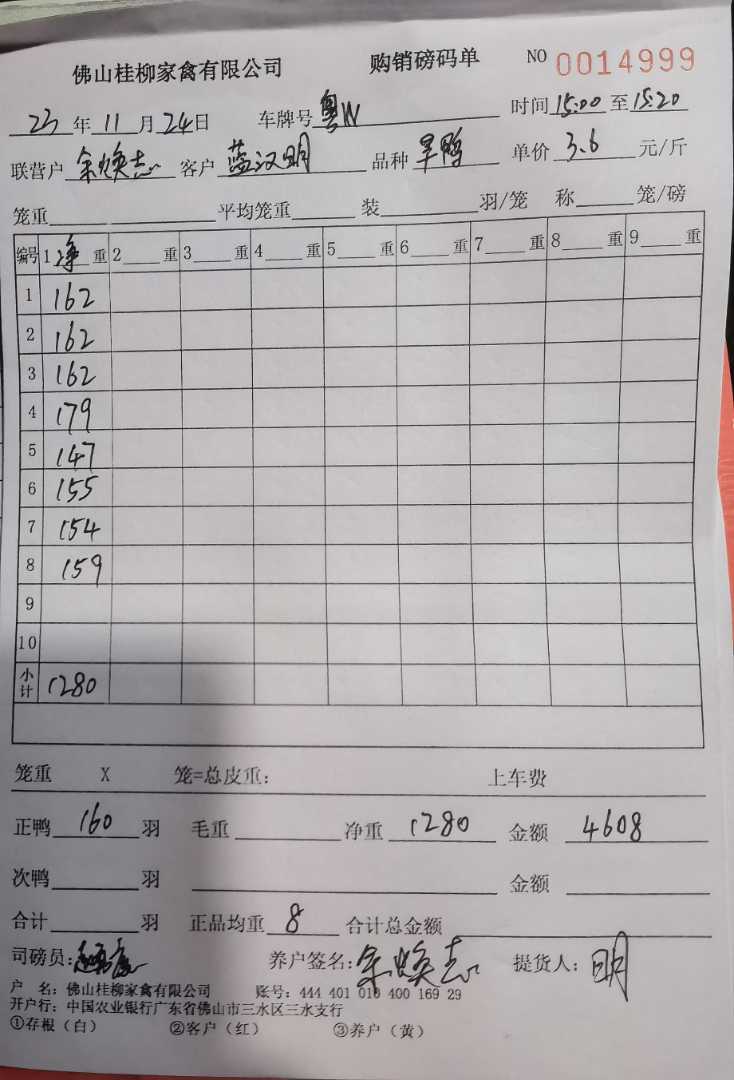 佛山桂柳家禽有限公司 购销磅码单 NO 0014999
23年11月24日 车牌号 粤W 时间15:00至15:20
联营户 余焕志 客户 蓝汉明 品种 旱鸭 单价 3.6 元/斤
笼重 平均笼重 装 羽/笼 称 笼/磅
编号 1 净 重 2 重 3 重 4 重 5 重 6 重 7 重 8 重 9 重
1 162
2 162
3 162
4 179
5 147
6 155
7 154
8 159
9
10
小计 1280
笼重 X 笼=总皮重: 上车费
正鸭 160 羽 毛重 净重 1280 金额 4608
次鸭 羽 金额
合计 羽 正品均重 8 合计总金额
司磅员: 养户签名: 余焕志 提货人: 明
户 名: 佛山桂柳家禽有限公司 账号: 444 401 010 400 169 29
开户行: 中国农业银行广东省佛山市三水区三水支行
①存根（白） ②客户（红） ③养户（黄）